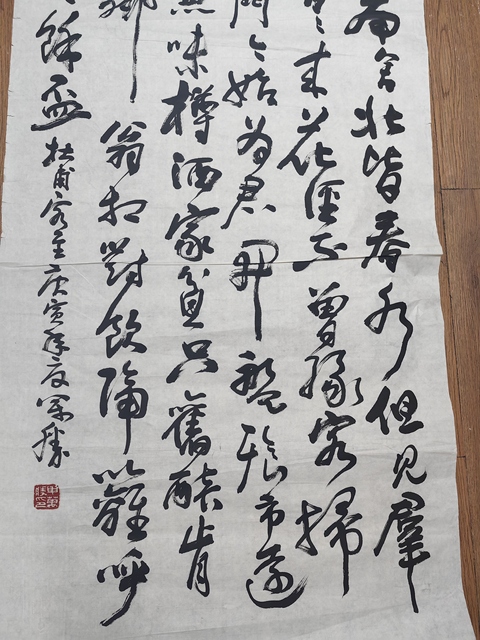 南舍北皆春水但見羣
来花徑不曾緣客掃
門今始为君開盤飧市遠
兼味樽酒家貧只舊醅肯
鄰翁相對飲隔籬呼
餘盃
杜甫客至庚寅年夏